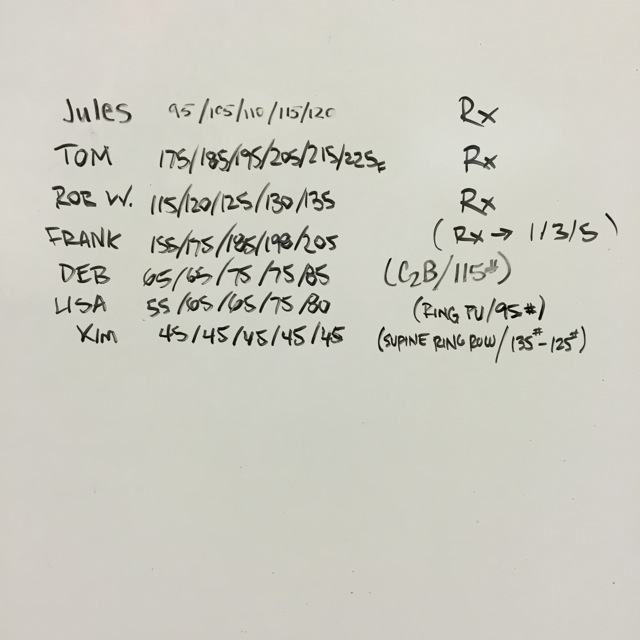 Jules 95/105/110/115/120 Rx
TOM 175/185/195/205/215/225F Rx
ROB W. 115/120/125/130/135 Rx
FRANK 155/175/185/198/205 (Rx → 1/3/5)
DEB 65/65/75/75/85 (C2B/115#)
LISA 55/65/65/75/80 (RING PU/95#)
KIM 45/45/45/45/45 (SUPINE RING ROW/135#-125#)